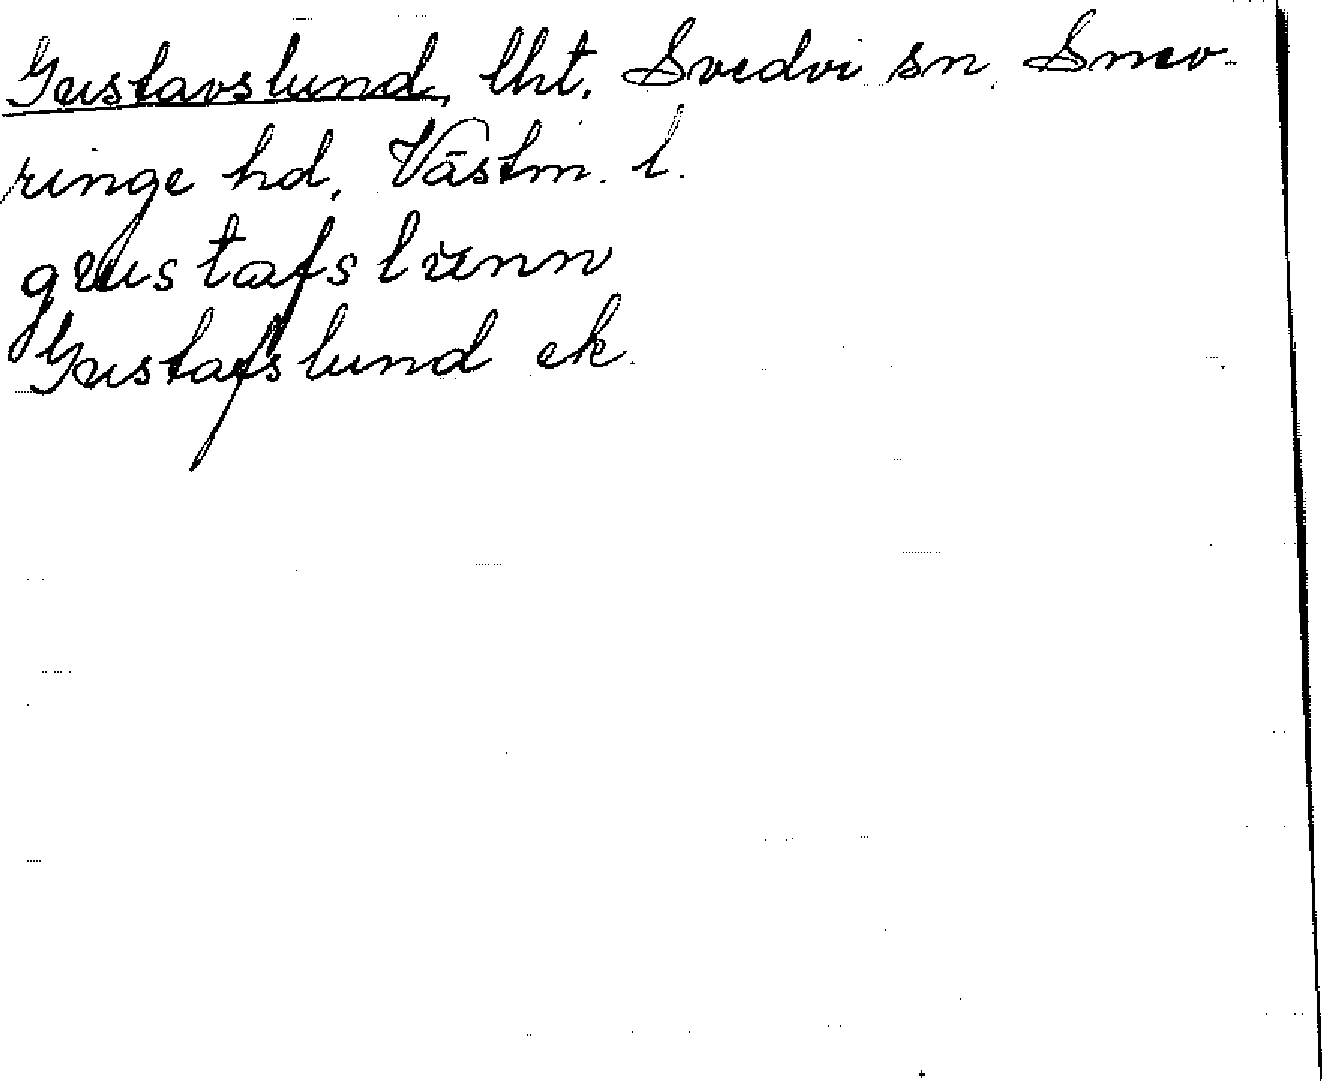 Gustavslund, lht, Svedvi sn Snev-
ringe hd, Västm. l.
gustafslŭnn
Gustafslund ek.